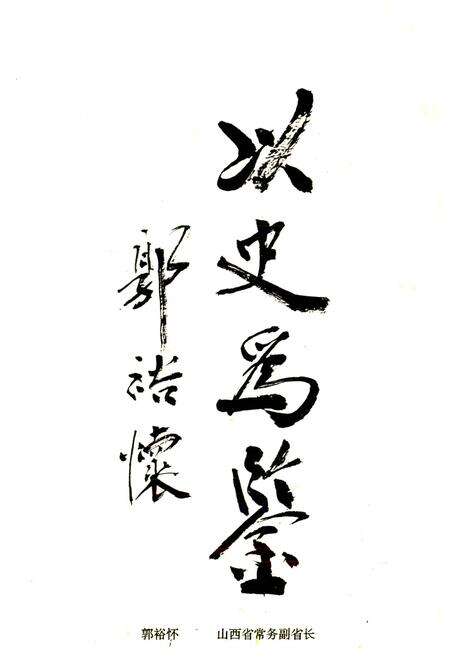 以史為鑒
郭裕懷
郭裕怀 山西省常务副省长